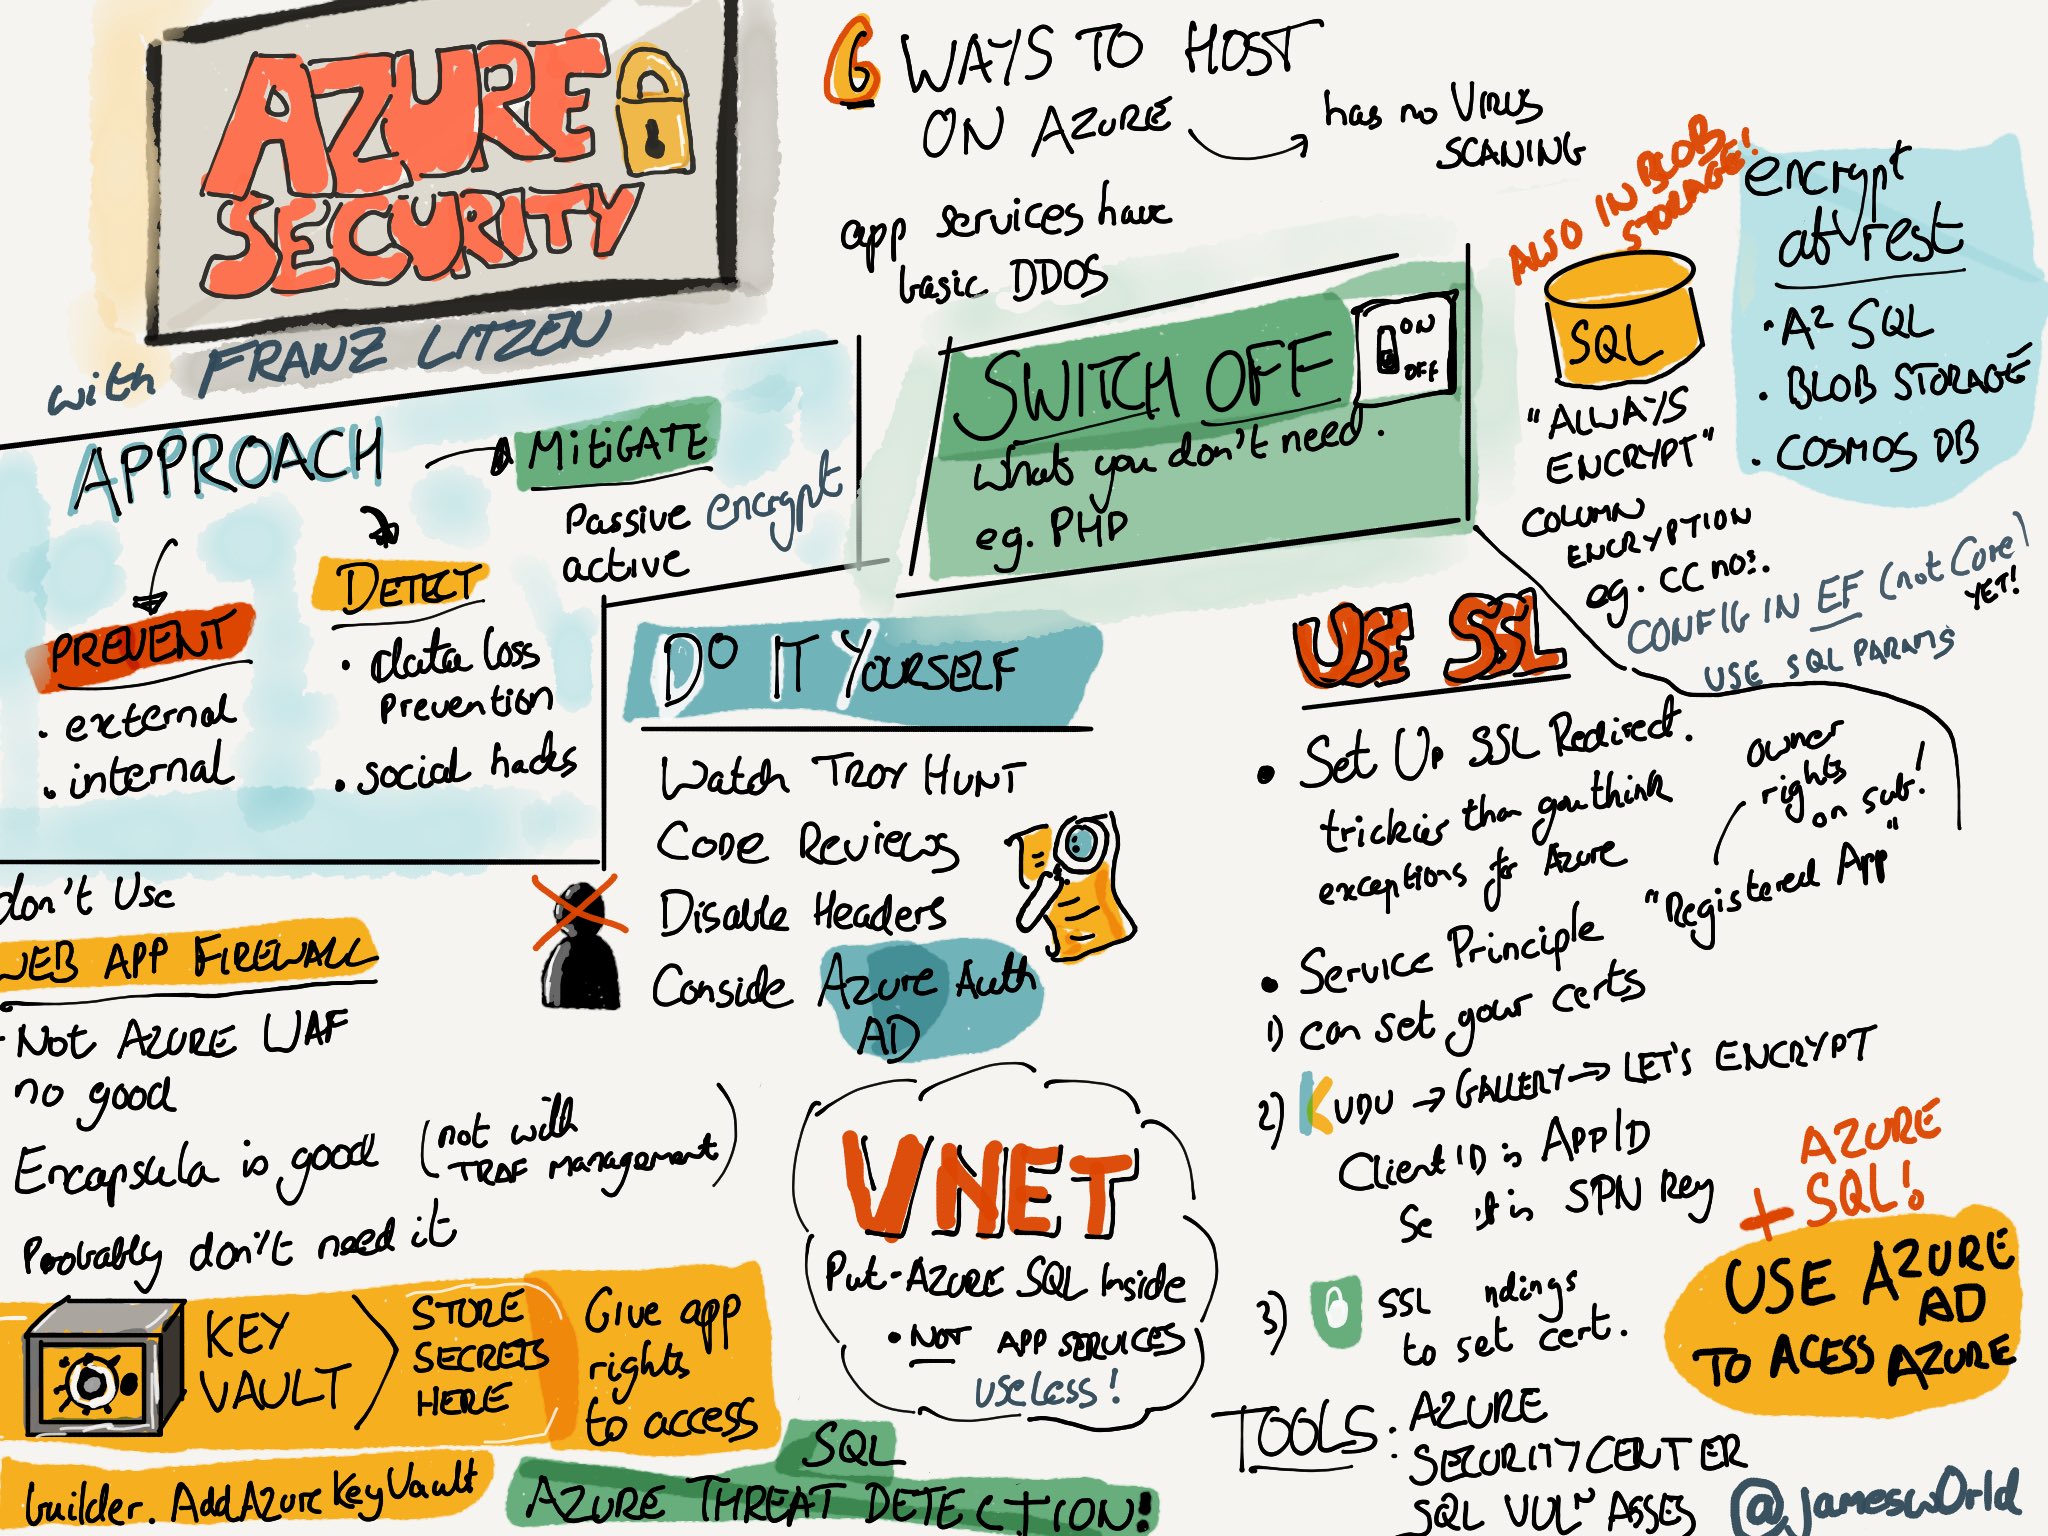 AZURE
SECURITY
with FRANZ LITZEN
6 WAYS TO HOST
ON AZURE
has no VIRUS
SCANING
app services have
basic DDOS
APPROACH
MITIGATE
Passive encrypt
active
PREVENT
• external
• internal
DETECT
• data loss
prevention
• social hacks
SWITCH OFF
ON
OFF
whats you don't need.
eg. PHP
ALSO IN BLOB
STORAGE!
SQL
"ALWAYS
ENCRYPT"
COLUMN
ENCRYPTION
eg. CC nos.
CONFIG IN EF (not Core)
YET!
USE SQL PARAMS
encrypt
at rest
• AZ SQL
• BLOB STORAGE
• COSMOS DB
DO IT YOURSELF
Watch TROY HUNT
CODE REVIEWS
Disable Headers
Conside Azure Auth
AD
USE SSL
• Set Up SSL Redirect.
trickier than you think
exceptions for Azure
owner
rights
on sub!
"Registered App"
• Service Principle
1) can set your certs
2) KUDU → GALLERY → LET'S ENCRYPT
Client ID is App ID
Se it is SPN Key
3) SSL ndings
to set cert.
don't Use
WEB APP FIREWALL
- Not AZURE WAF
no good
Encapsula is good (not with
TRAF management)
Probably don't need it
VNET
Put AZURE SQL Inside
• NOT APP SERVICES
useless!
AZURE
+ SQL!
USE AZURE
AD
TO ACESS AZURE
KEY
VAULT
STORE
SECRETS
HERE
Give app
rights
to access
builder.AddAzureKeyVault
SQL
AZURE THREAT DETECTION!
TOOLS: AZURE
SECURITY CENTER
SQL VULN ASSES
@jamesw0rld